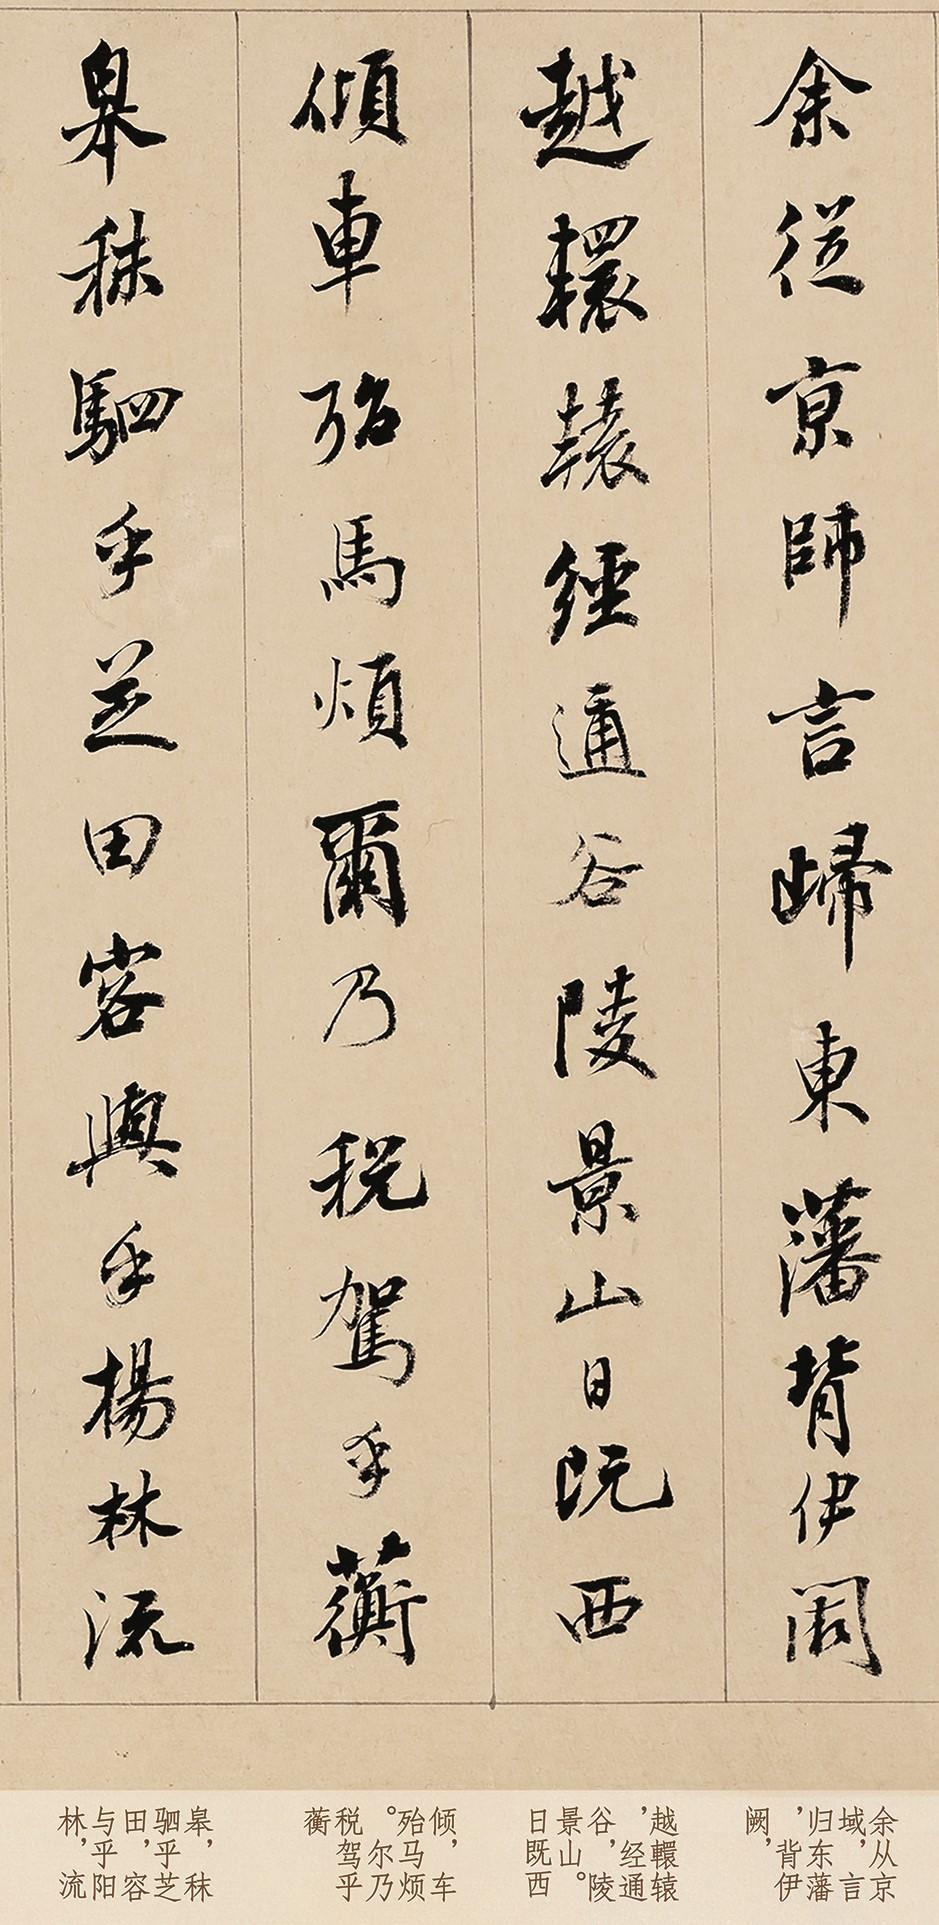 余從京師言歸東藩背伊闕
越轘轅經通谷陵景山日既西
傾車殆馬煩爾乃稅駕乎蘅
皋秣駟乎芝田容與乎楊林流
余从京
域，言
归东藩
，背伊
阙，
越轘辕
，经通
谷，陵
景山。
日既西
倾，车
殆马烦
。尔乃
税驾乎
蘅
皋，秣
驷乎芝
田，容
与乎阳
林，流